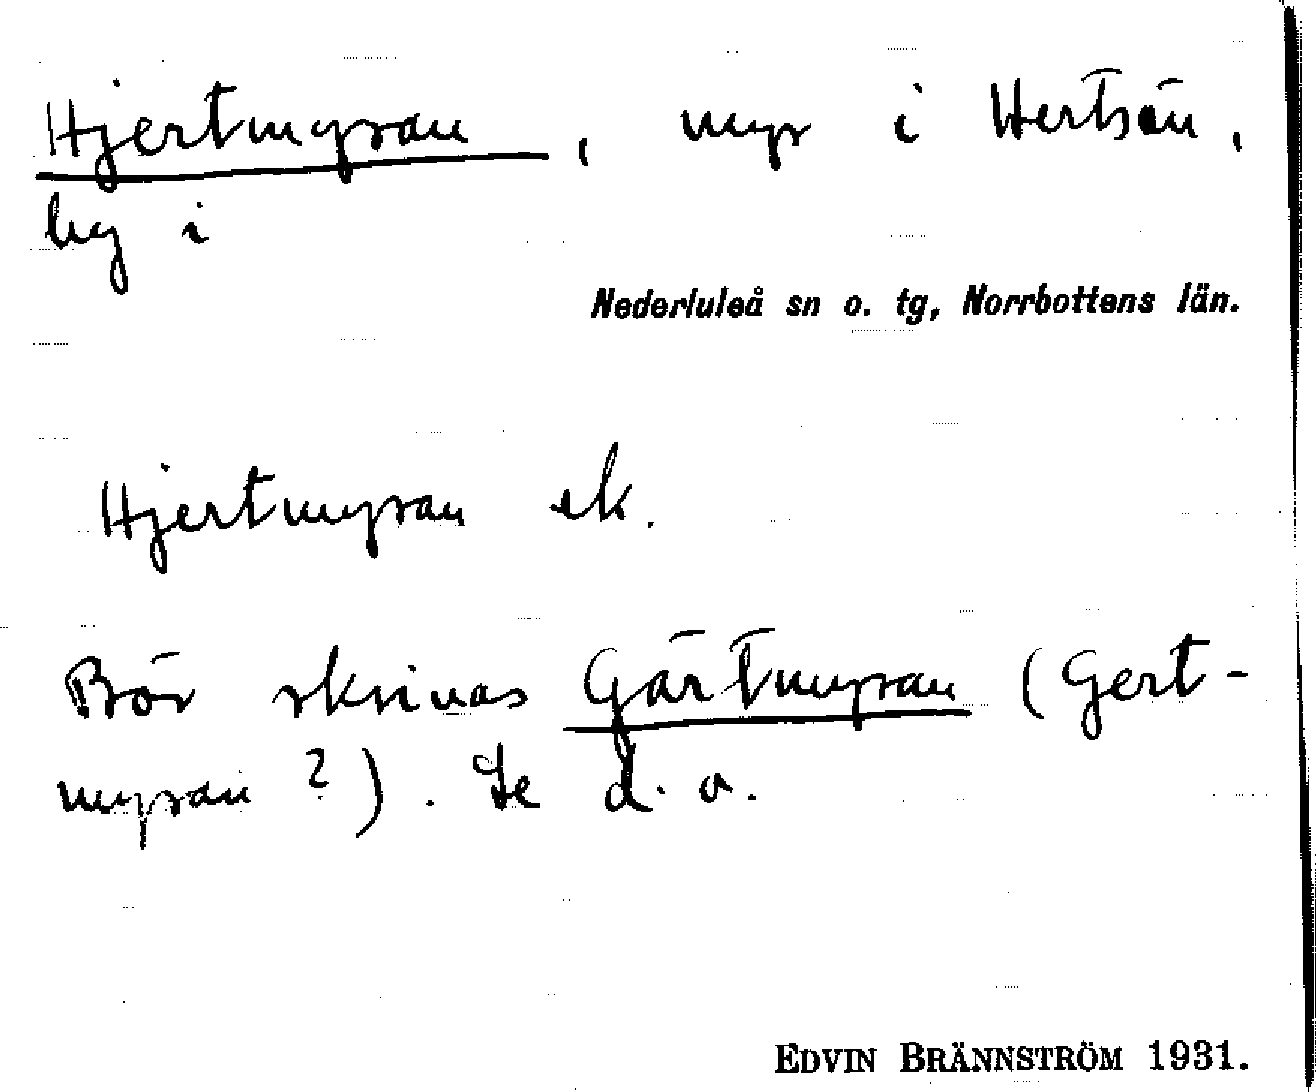 Hjertmyran, myr i Hertsön,
by i
Nederluleå sn o. tg, Norrbottens län.
Hjertmyran ek.
Bör skrivas Gärtmyran (Gert-
myran?). Se d. o.
EDVIN BRÄNNSTRÖM 1931.